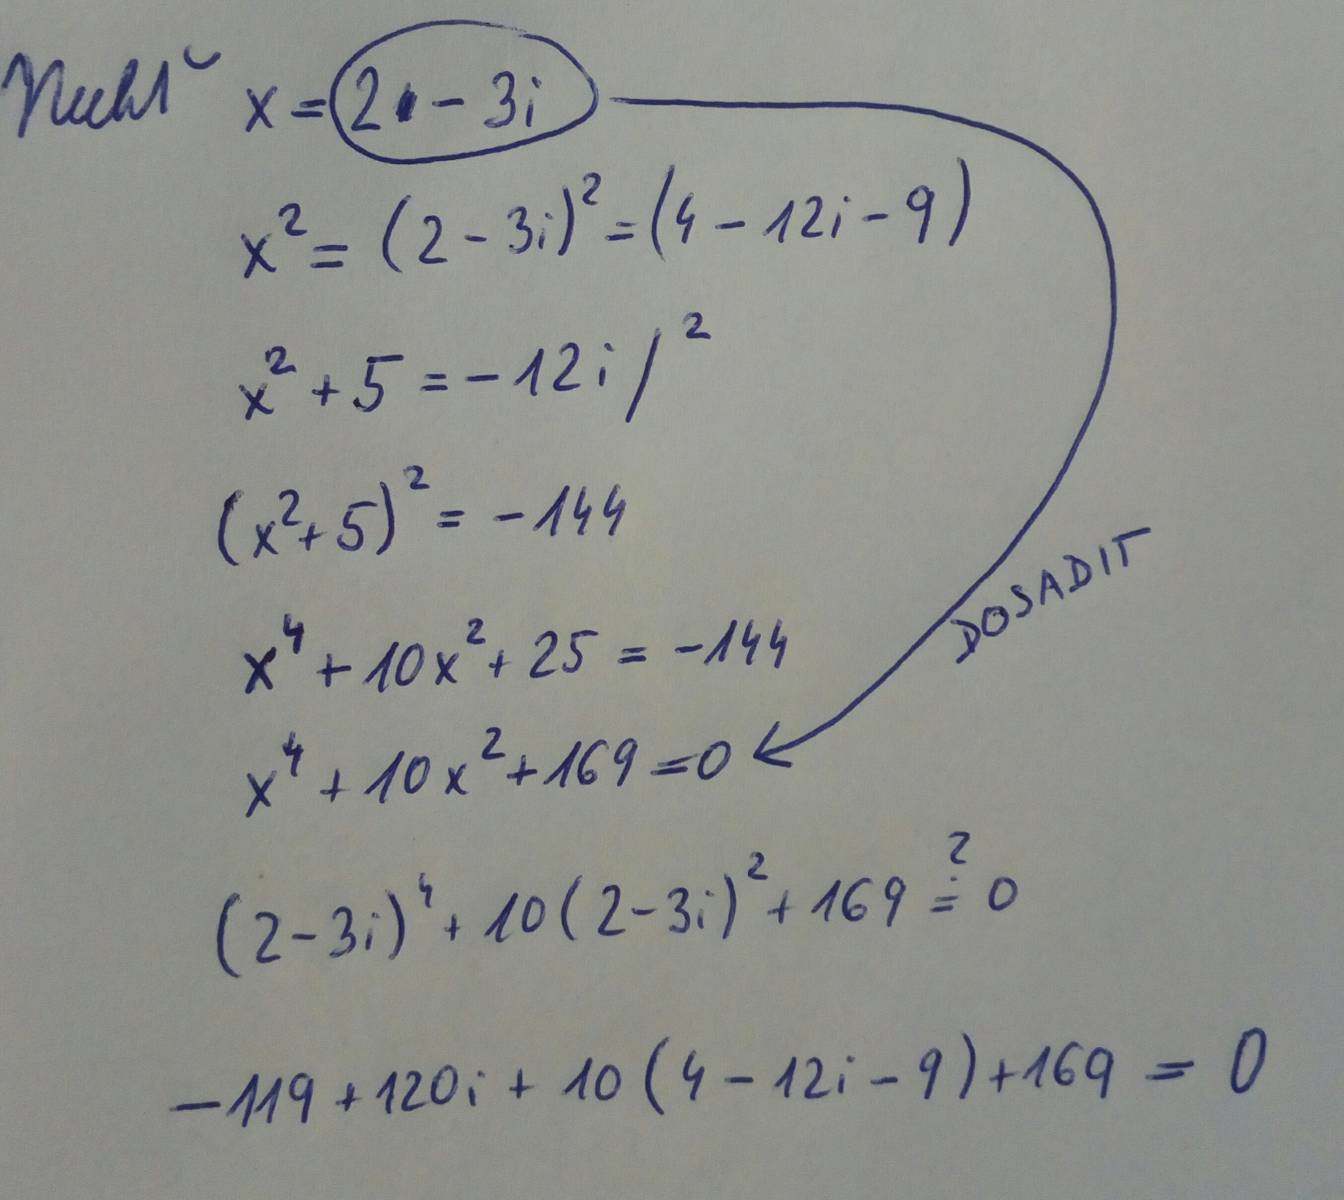 Nechť x = 2 - 3i
x² = (2 - 3i)² = (4 - 12i - 9)
x² + 5 = -12i /²
(x² + 5)² = -144
x⁴ + 10x² + 25 = -144
x⁴ + 10x² + 169 = 0
DOSADIT
(2 - 3i)⁴ + 10(2 - 3i)² + 169 ≟ 0
-119 + 120i + 10(4 - 12i - 9) + 169 = 0